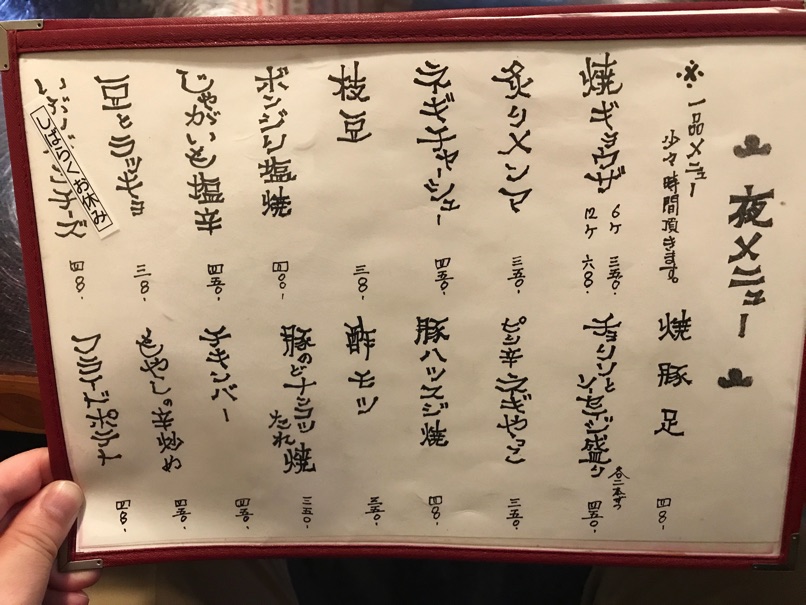 夜メニュー
※一品メニュー
少々時間頂きます。
焼ギョウザ 6ケ 三五〇.-
12ケ 六〇〇.-
炙りメンマ 三五〇.-
ネギチャーシュー 四五〇.-
枝豆 三〇〇.-
ボンジリ塩焼 四〇〇.-
じゃがいも塩辛 四五〇.-
豆とラッキョ 三〇〇.-
チーズ 四〇〇.-
しばらくお休み
焼豚足 四〇〇.-
チョリソと
ソーセイジ盛り 各二本ずつ 四五〇.-
ピリ辛ネギやっこ 三五〇.-
豚ハツスジ焼 四〇〇.-
酢モツ 三五〇.-
豚のどナンコツ焼 たれ 三五〇.-
チキンバー 四五〇.-
もやしの辛炒め 四五〇.-
フライドポテト 四〇〇.-